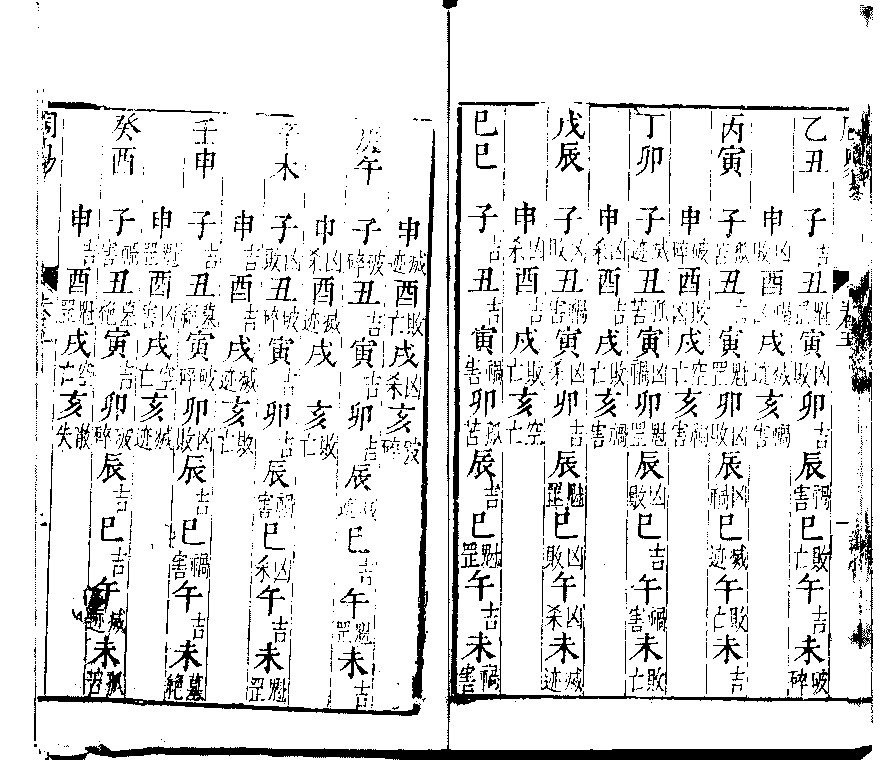 乙丑 子吉丑魁罡寅凶敗卯吉辰禍害巳敗亡午吉未破碎
申凶敗酉禍凶戌滅迹亥禍害
丙寅 子孤苦丑吉寅魁罡卯凶敗辰凶禍巳滅迹午敗亡未吉
申破碎酉敗凶戌空亡亥禍害
丁卯 子滅迹丑孤苦寅凶禍卯魁罡辰凶敗巳吉午禍害未敗亡
申凶杀酉吉戌敗亡亥禍害
戊辰 子凶敗丑禍害寅滅迹卯吉辰魁罡巳凶敗午凶杀未滅迹
申凶杀酉吉戌敗亡亥空亡
己巳 子吉丑吉寅禍害卯孤苦辰吉巳魁罡午吉未禍害
申滅迹酉敗亡戌凶杀亥破碎
庚午 子破碎丑吉寅吉卯吉辰滅迹巳吉午魁罡未吉
申凶杀酉滅迹戌亥敗亡
辛未 子凶敗丑破碎寅吉卯吉辰禍害巳凶杀午吉未魁罡
申吉酉吉戌滅迹亥敗亡
壬申 子吉丑墓絕寅破碎卯凶敗辰吉巳禍害午吉未墓絕
申魁罡酉凶害戌空亡亥滅迹
癸酉 子禍害丑墓絕寅吉卯破碎辰吉巳吉午滅迹未孤苦
申吉酉魁罡戌空亡亥敗失